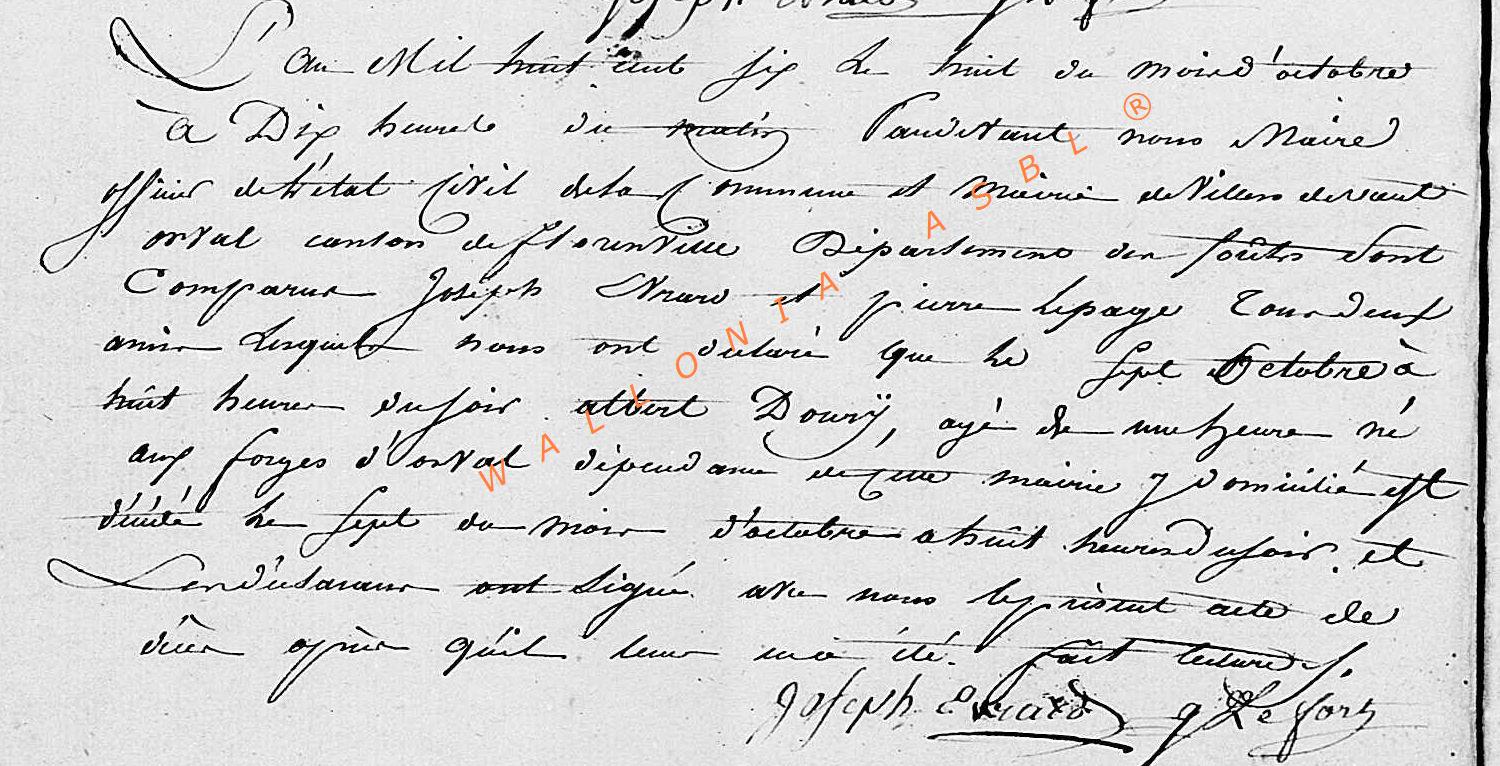 L'an Mil huit cent six le huit du mois d'octobre
à Dix heures du matin Pardevant nous Maire
officier de l'état Civil de la Commune et Mairie de Villers devant
orval canton de florenville Département des forêts sont
Comparus Joseph Evrard et pierre lepage tous deux
amis lesquels nous ont déclaré que le sept Octobre à
huit heures du soir albert Doury, agé de une heure né
aux forges d'orval dépendance de cette mairie y domicilié est
décédé le sept du mois d'octobre a huit heures du soir. et
Les déclarans ont signé avec nous le présent acte de
décès après qu'il leur en a été fait lecture
Joseph Evrard
WALLONIA ASBL ®